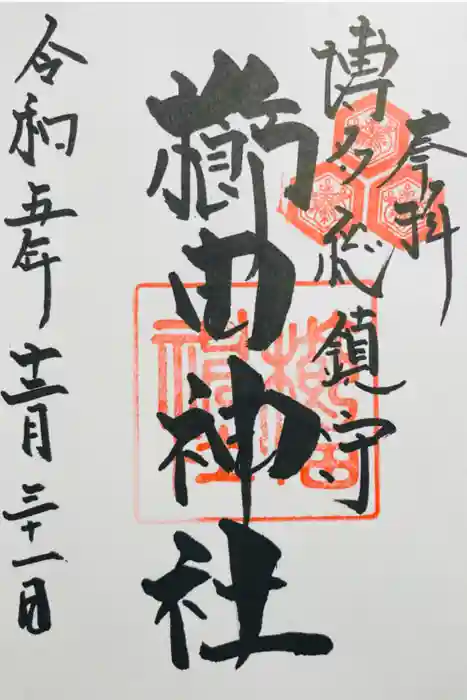 奉拝
博多総鎮守
櫛田神社
令和五年十二月三十一日